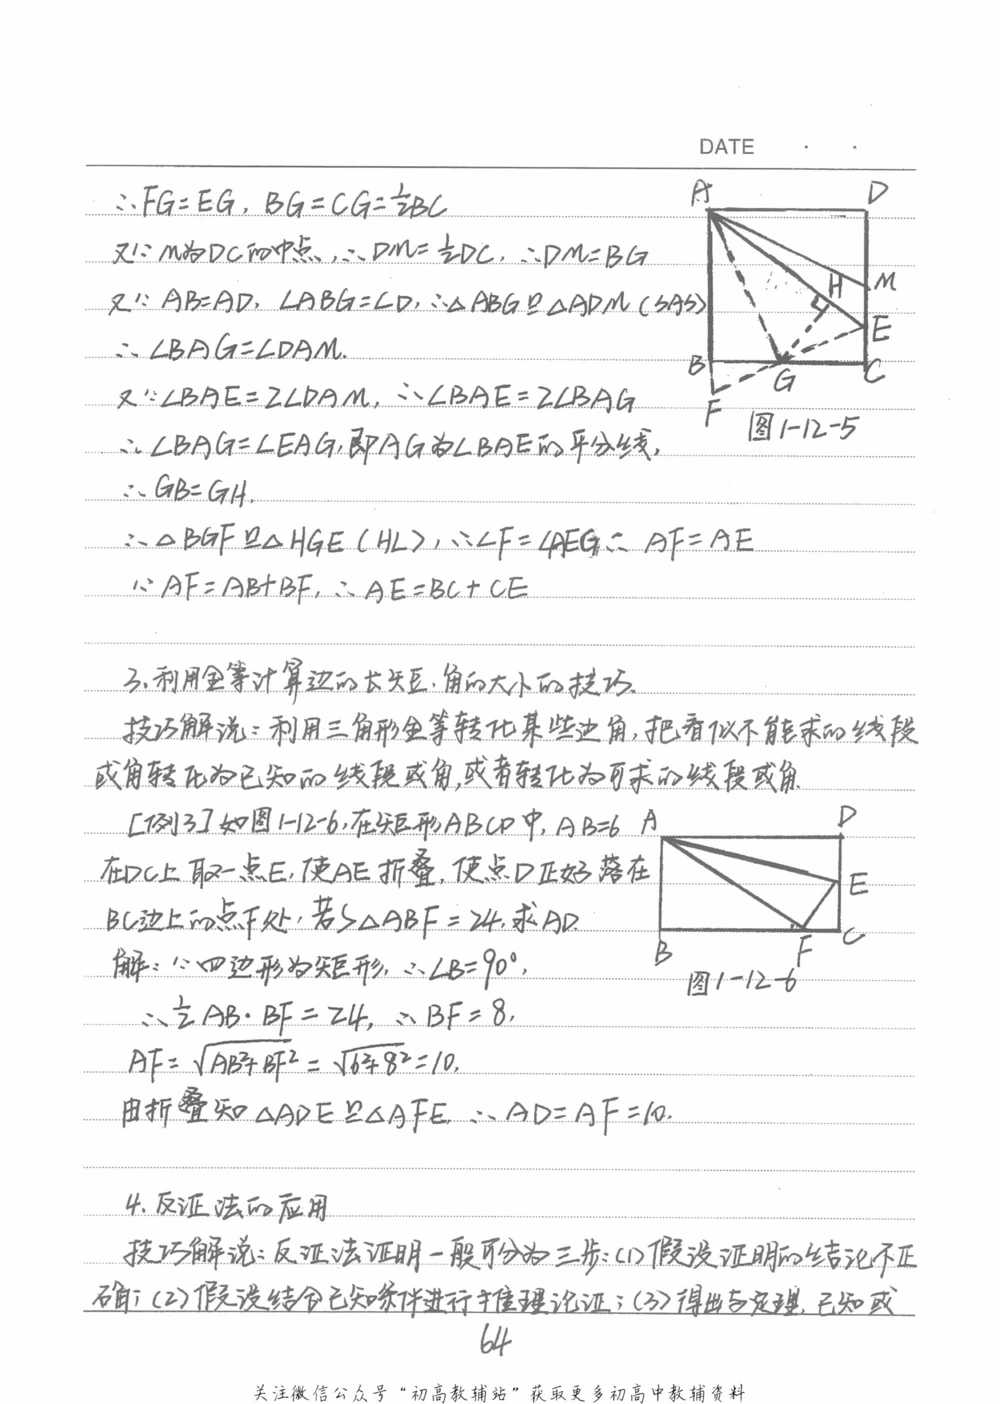 DATE · ·
∴FG=EG, BG=CG=½BC
又∵M为DC的中点,∴DM=½DC, ∴DM=BG
又∵ AB=AD, ∠ABG=∠D,∴△ABG≌△ADM (SAS)
∴∠BAG=∠DAM.
又∵∠BAE=2∠DAM, ∴∠BAE=2∠BAG
∴∠BAG=∠EAG,即AG为∠BAE的平分线,
∴GB=GH.
∴△BGF≌△HGE (HL), ∴∠F=∠AEG∴ AF=AE
∵AF=AB+BF, ∴AE=BC+CE
A D H M E B G C F
图1-12-5
3.利用全等计算边的长短.角的大小的技巧.
技巧解说:利用三角形全等转化某些边角,把看似不能求的线段
或角转化为已知的线段或角,或者转化为可求的线段或角.
[例3]如图1-12-6,在矩形ABCD中,AB=6
在DC上取一点E,使AE折叠,使点D正好落在
BC边上的点F处,若S△ABF=24,求AD.
A D E B F C
图1-12-6
解:∵四边形为矩形,∴∠B=90°,
∴½AB·BF=24, ∴BF=8,
AF=√AB²+BF²=√6²+8²=10,
由折叠知△ADE≌△AFE, ∴AD=AF=10.
4.反证法的应用
技巧解说:反证法证明一般可分为三步:(1)假设证明的结论不正
确;(2)假设结合已知条件进行于推理论证;(3)得出与定理,已知或
64
关注微信公众号“初高教辅站”获取更多初高中教辅资料